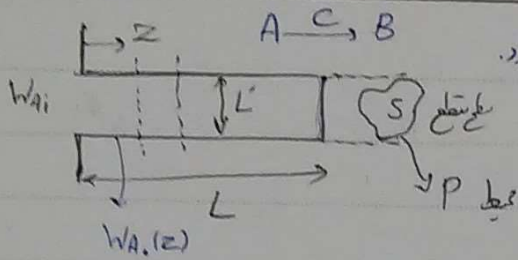 z
A —C→ B
W_Ai
L'
S
سطح مقطع
L
P محیط
W_A.(z)